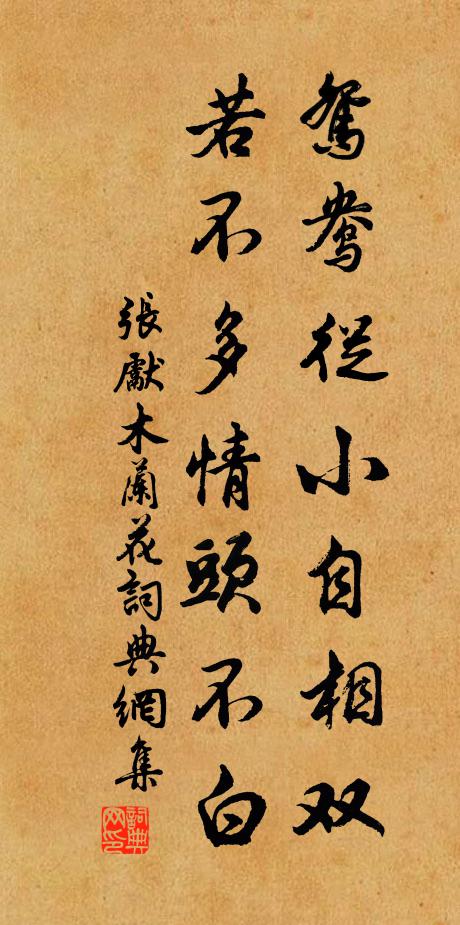 鴛鴦從小自相双
若不多情頭不白
張獻木蘭花詞典網集
詞典网印